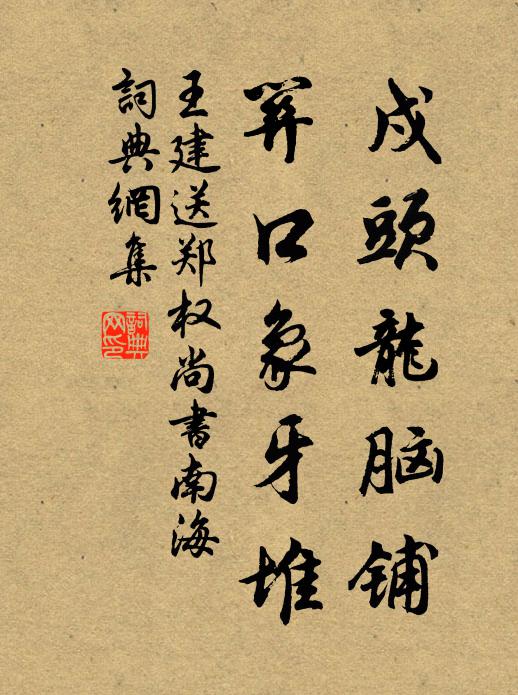 戍頭龍脑铺
關口象牙堆
王建送郑权尚書南海
詞典網集
詞典网印